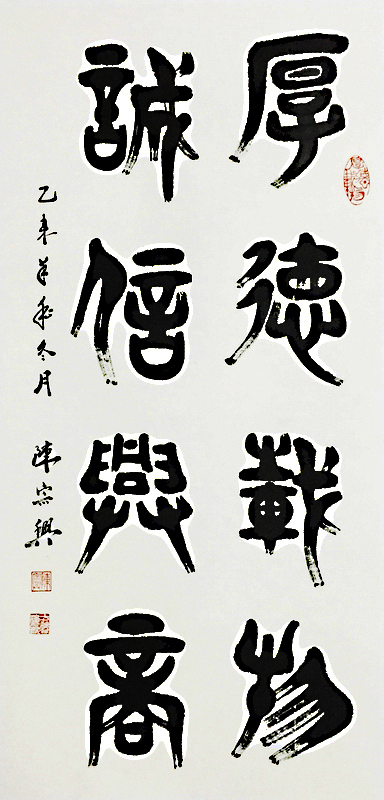 厚德載物
誠信興商
乙未羊年冬月 陳宗興